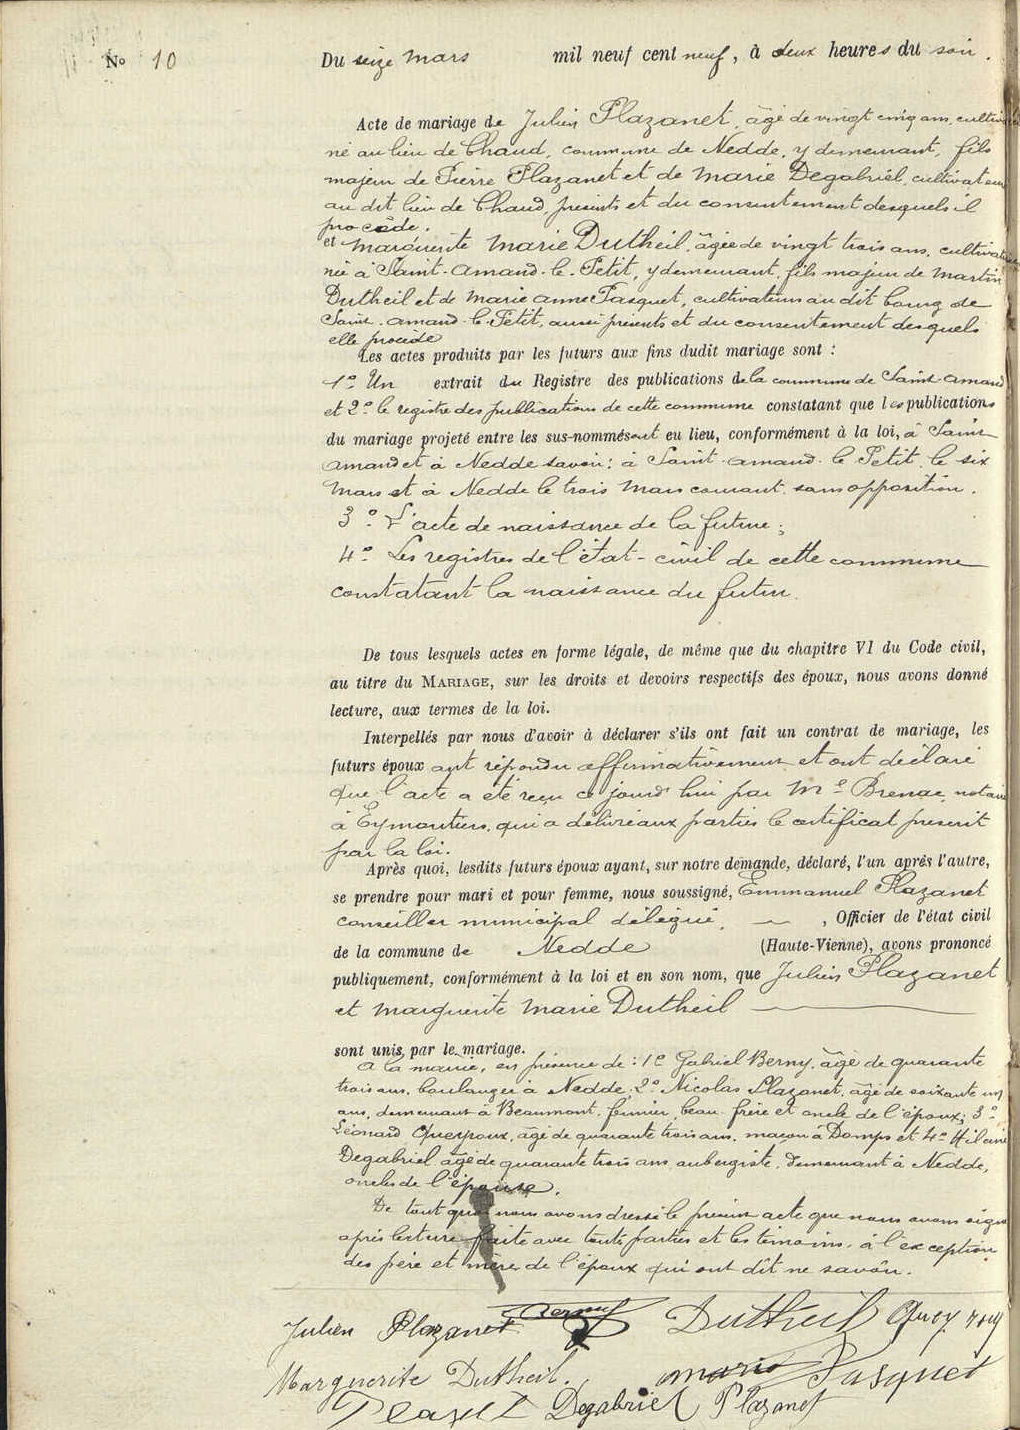 No 10 Du seize mars mil neuf cent neuf, à deux heures du soir.
Acte de mariage de Julien Plazanet, âgé de vingt cinq ans,
né au lieu de Chaud, commune de Nedde, y demeurant, fils
majeur de Pierre Plazanet et de Marie Degabriel, cultivateurs
au dit lieu de Chaud, présents et du consentement desquels il
procède.
et Marguerite Marie Dutheil, âgée de vingt trois ans,
née à Saint-Amand-le-Petit, y demeurant, fils majeur de Martin
Dutheil et de Marie Anne Pasquet, cultivateurs au dit bourg de
Saint-Amand-le-Petit, aussi présents et du consentement desquels
elle procède
Les actes produits par les futurs aux fins dudit mariage sont :
1º Un extrait du Registre des publications de la commune de Saint-Amand
et 2º le registre des publications de cette commune constatant que les publications
du mariage projeté entre les sus-nommés ont eu lieu, conformément à la loi, à Saint-
Amand et à Nedde savoir : à Saint-Amand-le-Petit, le six
Mars et à Nedde le trois Mars courant, sans opposition.
3º L'acte de naissance de la future ;
4º Les registres de l'état-civil de cette commune
constatant la naissance du futur.
De tous lesquels actes en forme légale, de même que du chapitre VI du Code civil,
au titre du MARIAGE, sur les droits et devoirs respectifs des époux, nous avons donné
lecture, aux termes de la loi.
Interpellés par nous d'avoir à déclarer s'ils ont fait un contrat de mariage, les
futurs époux ont répondu affirmativement et ont déclaré
que l'acte a été reçu ce jourd'hui par Me Brenac, notaire
à Eymoutiers, qui a délivré aux parties le certificat prescrit
par la loi.
Après quoi, lesdits futurs époux ayant, sur notre demande, déclaré, l'un après l'autre,
se prendre pour mari et pour femme, nous soussigné, Emmanuel Plazanet
conseiller municipal délégué, , Officier de l'état civil
de la commune de Nedde (Haute-Vienne), avons prononcé
publiquement, conformément à la loi et en son nom, que Julien Plazanet
et Marguerite Marie Dutheil
sont unis par le mariage.
à la mairie, en présence de : 1º Gabriel Berny, âgé de quarante
trois ans, boulanger à Nedde, 2º Nicolas Plazanet, âgé de soixante un
ans, demeurant à Beaumont, fermier, beau-frère et oncle de l'époux ; 3º
Léonard Queyroux, âgé de quarante trois ans, maçon à Domps et 4º Hilaire
Degabriel âgé de quarante trois ans aubergiste, demeurant à Nedde,
oncles de l'épouse.
De tout quoi nous avons dressé le présent acte que nous avons signé
après lecture faite avec toutes parties et les témoins, à l'exception
des père et mère de l'époux qui ont dit ne savoir.
Julien Plazanet Berny Dutheil
Marguerite Dutheil. Marie Pasquet
Degabriel Plazanet